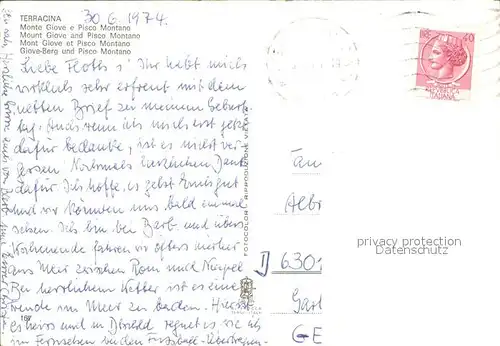 TERRACINA
30.6.1974.
Monte Giove e Pisco Montano
Mount Giove and Pisco Montano
Mont Giove et Pisco Montano
Giove-Berg und Pisco Montano
Liebe Floths! Ihr habt mich
wirklich sehr erfreut mit dem
netten Brief zu meinem Geburts-
tag. Auch wenn ich mich erst jetzt
dafür bedanke, ist es nicht ver-
gessen! Nochmals herzlichen Dank
dafür. Ich hoffe, es geht Euch gut
und wir können uns bald einmal
sehen. Ich bin bei Barb. und übers
Wochenende fahren wir öfters hierher
ans Meer zwischen Rom und Neapel
Bei herrlichem Wetter ist es eine
Freude im Meer zu baden. Hier ist
es heiss und in Dtschld regnet es wie ich
im Fernsehen bei den Fussball-Übertragun-
167
FOTOCOLOR - RIPRODUZIONE VIETATA
40
ITALIANA
An
Albr
D 6301
Gart
GE
privacy protection
Datenschutz